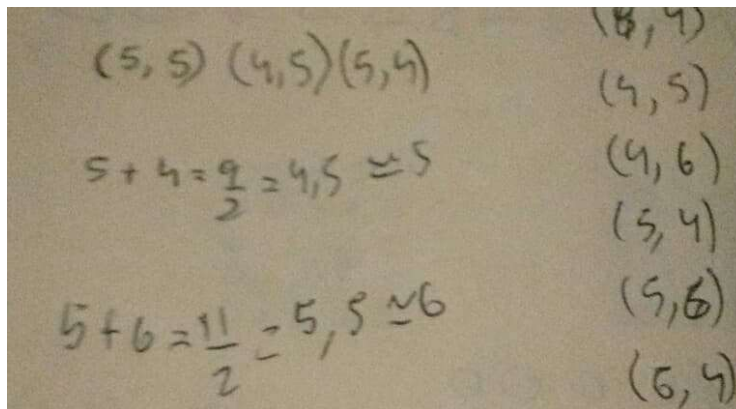 (5,5) (4,5)(5,4)
5 + 4 = 9/2 = 4,5 ≃ 5
5 + 6 = 11/2 = 5,5 ≃ 6
(4,5)
(4,6)
(5,4)
(5,6)
(6,4)